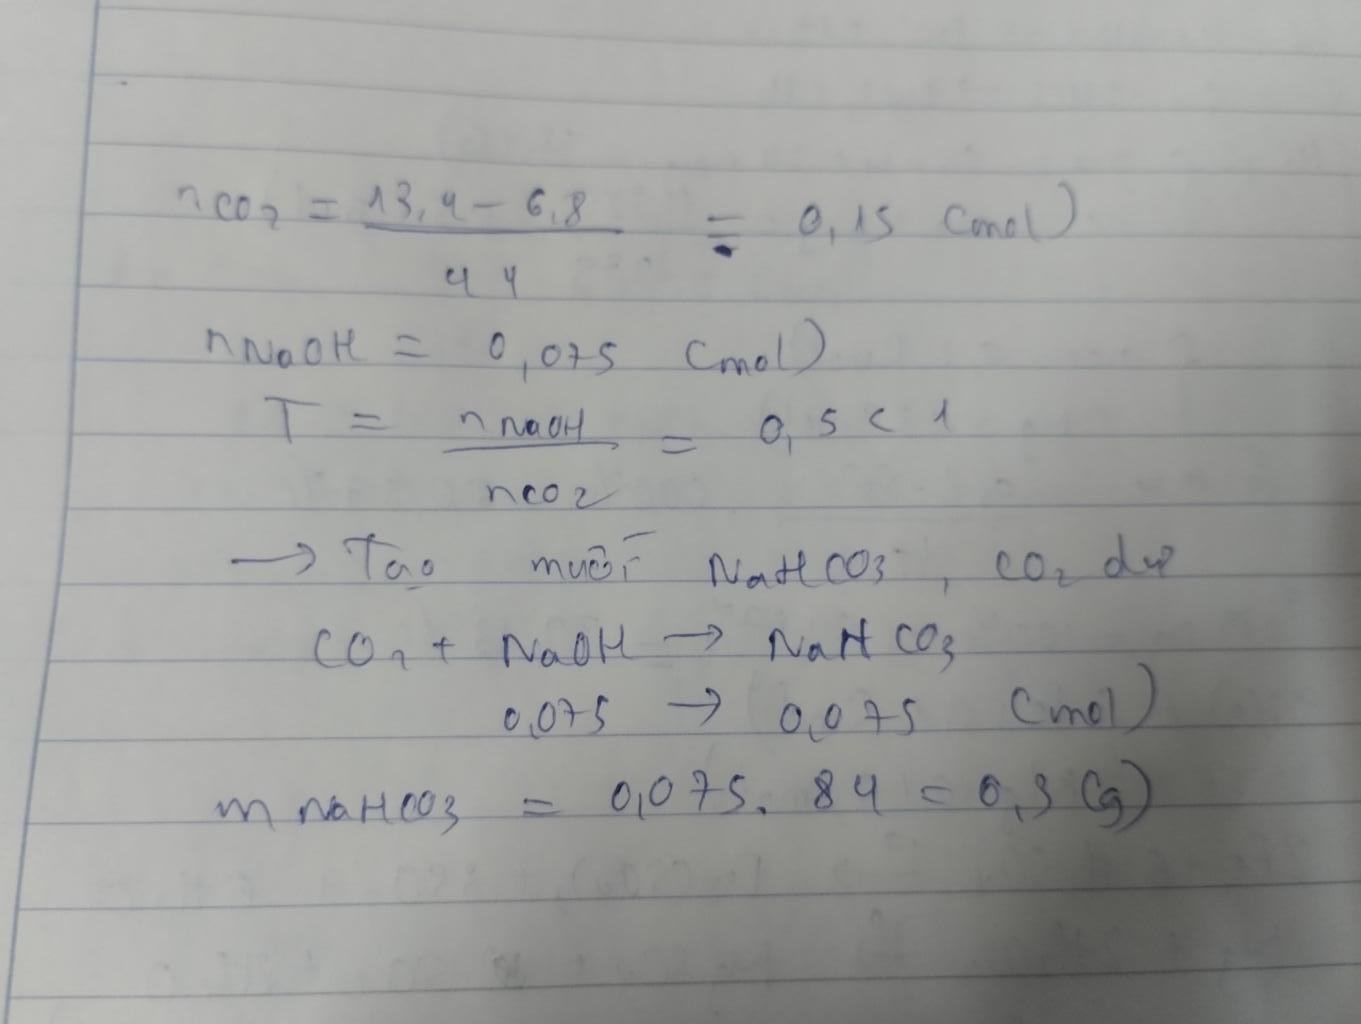 nCO2 = 13,4 - 6,8 / 44 = 0,15 (mol)
nNaOH = 0,075 (mol)
T = nNaOH / nCO2 = 0,5 < 1
→ Tạo muối NaHCO3, CO2 dư
CO2 + NaOH → NaHCO3
0,075 → 0,075 (mol)
m NaHCO3 = 0,075. 84 = 6,3 (g)